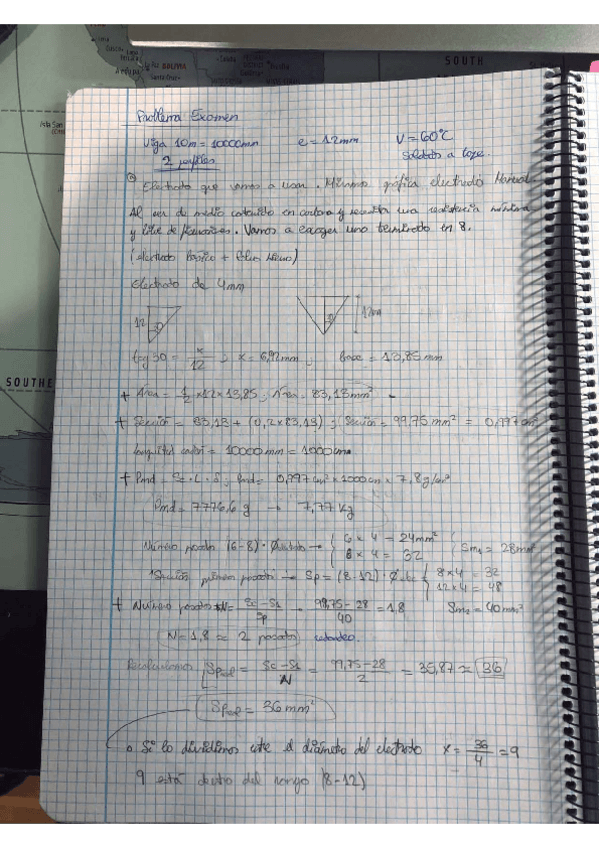 SOUTH
BOLIVIA
Problema Examen
Viga 10m = 10000mm e = 12mm V = 60°C
2 perfiles Soldado a tope.
Electrodo que vamos a usar. Mismo gráfica electrodos Manual.
Al ser de medio contenido en carbono y necesita una resistencia
y libre de fisuraciones. Vamos a escoger uno terminado en 8.
(electrodo básico +
Electrodo de 4mm
12 30 30 12mm
tag 30 = x/12 ; x = 6,92mm ; base = 13,85 mm
+ Area = 1/2 x 12 x 13,85 ; Area = 83,13mm²
+ Sección = 83,13 + (0,2 x 83,13) ; Sección = 99,75 mm² = 0,997 cm²
longitud cordón = 10000mm = 1000cm
+ Pmd = Sc · L · δ ; Pmd = 0,997 cm² x 1000cm x 7,8 g/cm³
Pmd = 7776,6 g → 7,77 Kg
Número pasadas (6-8) · Ø electrodo → { 6 x 4 = 24mm² 8 x 4 = 32 { Sm₁ = 28mm²
Sección primera pasada → Sp = (8-12) · Ø elec { 8 x 4 = 32 12 x 4 = 48
+ Número pasadas N = Sc-S1/Sp = 99,75-28/40 = 1,8 Sm₂ = 40mm²
N = 1,8 ≈ 2 pasadas redondeo.
Recalculamos Sp = Sc-S1/N = 99,75-28/2 = 35,87 ≈ 36
Sp = 36mm²
Si lo dividimos entre el diámetro del electrodo x = 36/4 = 9
9 está dentro del rango (8-12)
SOUTHE